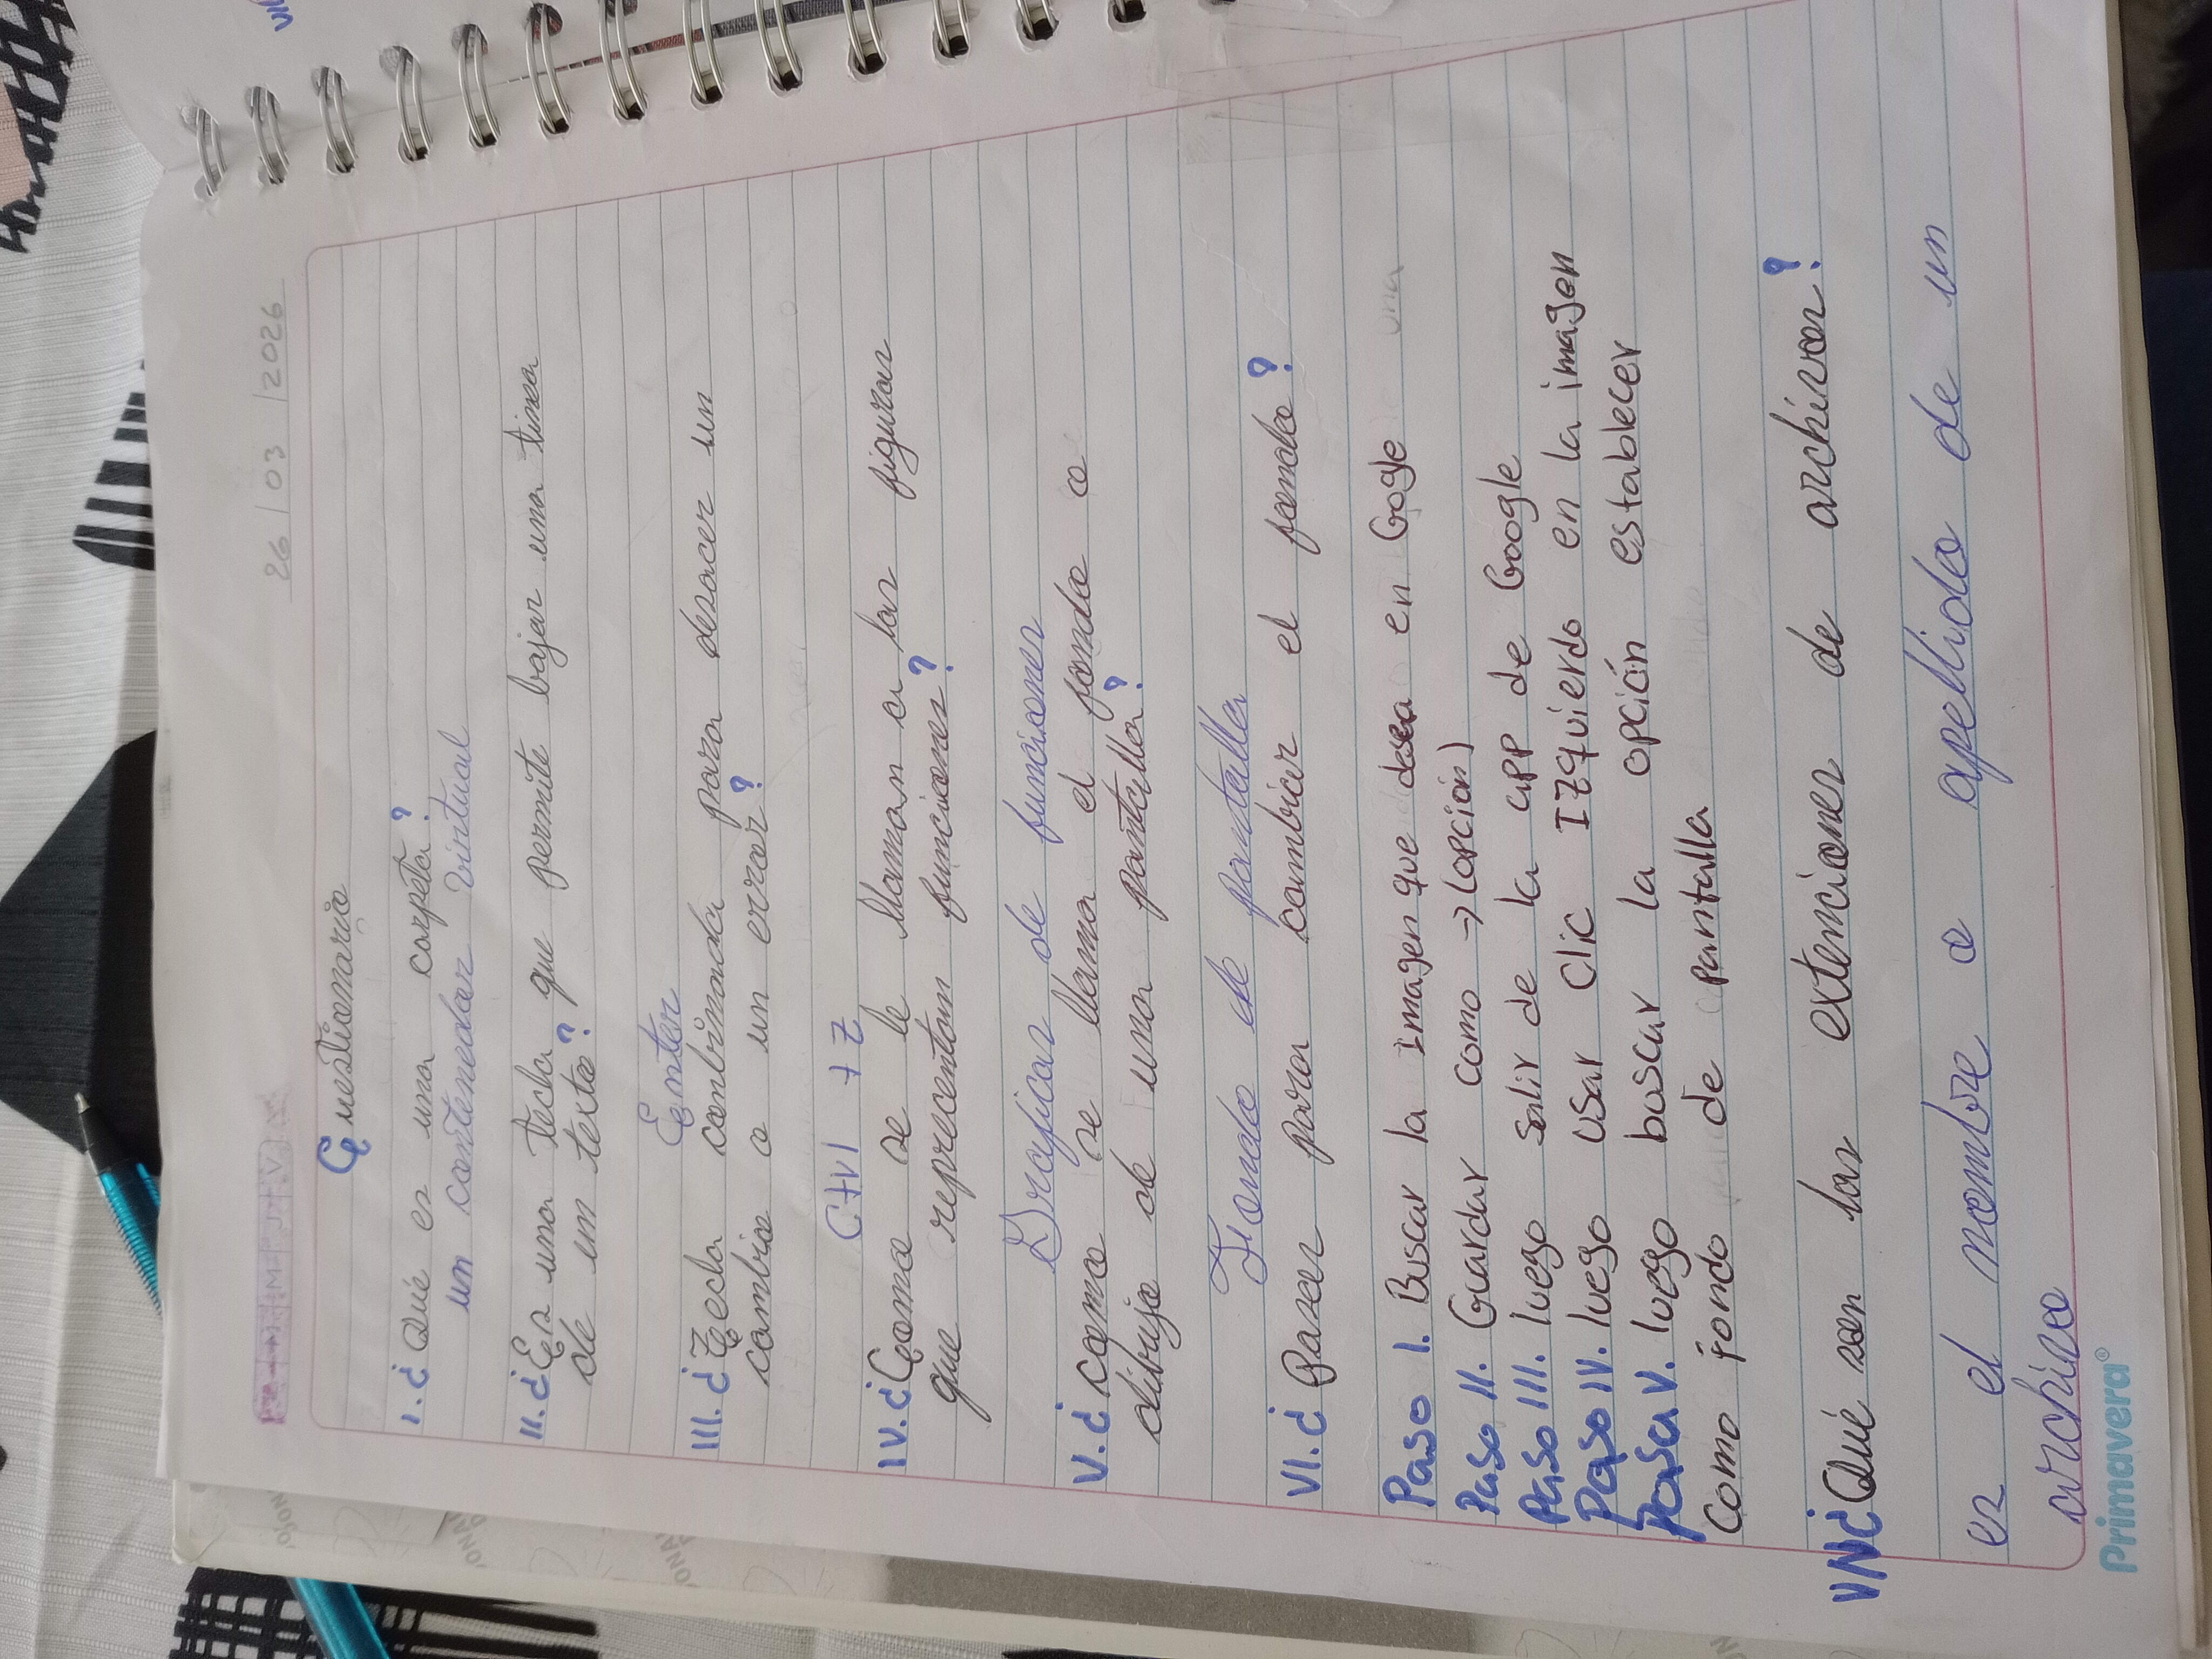 26 / 03 / 2026
Cuestionario
I. ¿Qué es una carpeta?
un contenedor virtual
II. ¿Es una tecla que permite bajar una linea
de un texto?
Enter
III. ¿Tecla combinada para desacer un
cambio o un error?
Ctrl + Z
IV. ¿Como se le llaman a las figuras
que reprecentan funciones?
Graficas de funciones
V. ¿como se llama el fondo o
dibujo de una pantalla?
Fondo de pantalla
VI. ¿Pasos para cambiar el fondo?
Paso I. Buscar la Imagen que desea en Google
Paso II. Guardar como → (opción)
Paso III. luego salir de la app de Google
Paso IV. luego usar Clic Izquierdo en la imagen
Paso V. luego buscar la opción establecer
Como fondo de pantalla
VII ¿Qué son las extenciones de archivos?
es el nombre o apellido de un
archivo
Primavera®